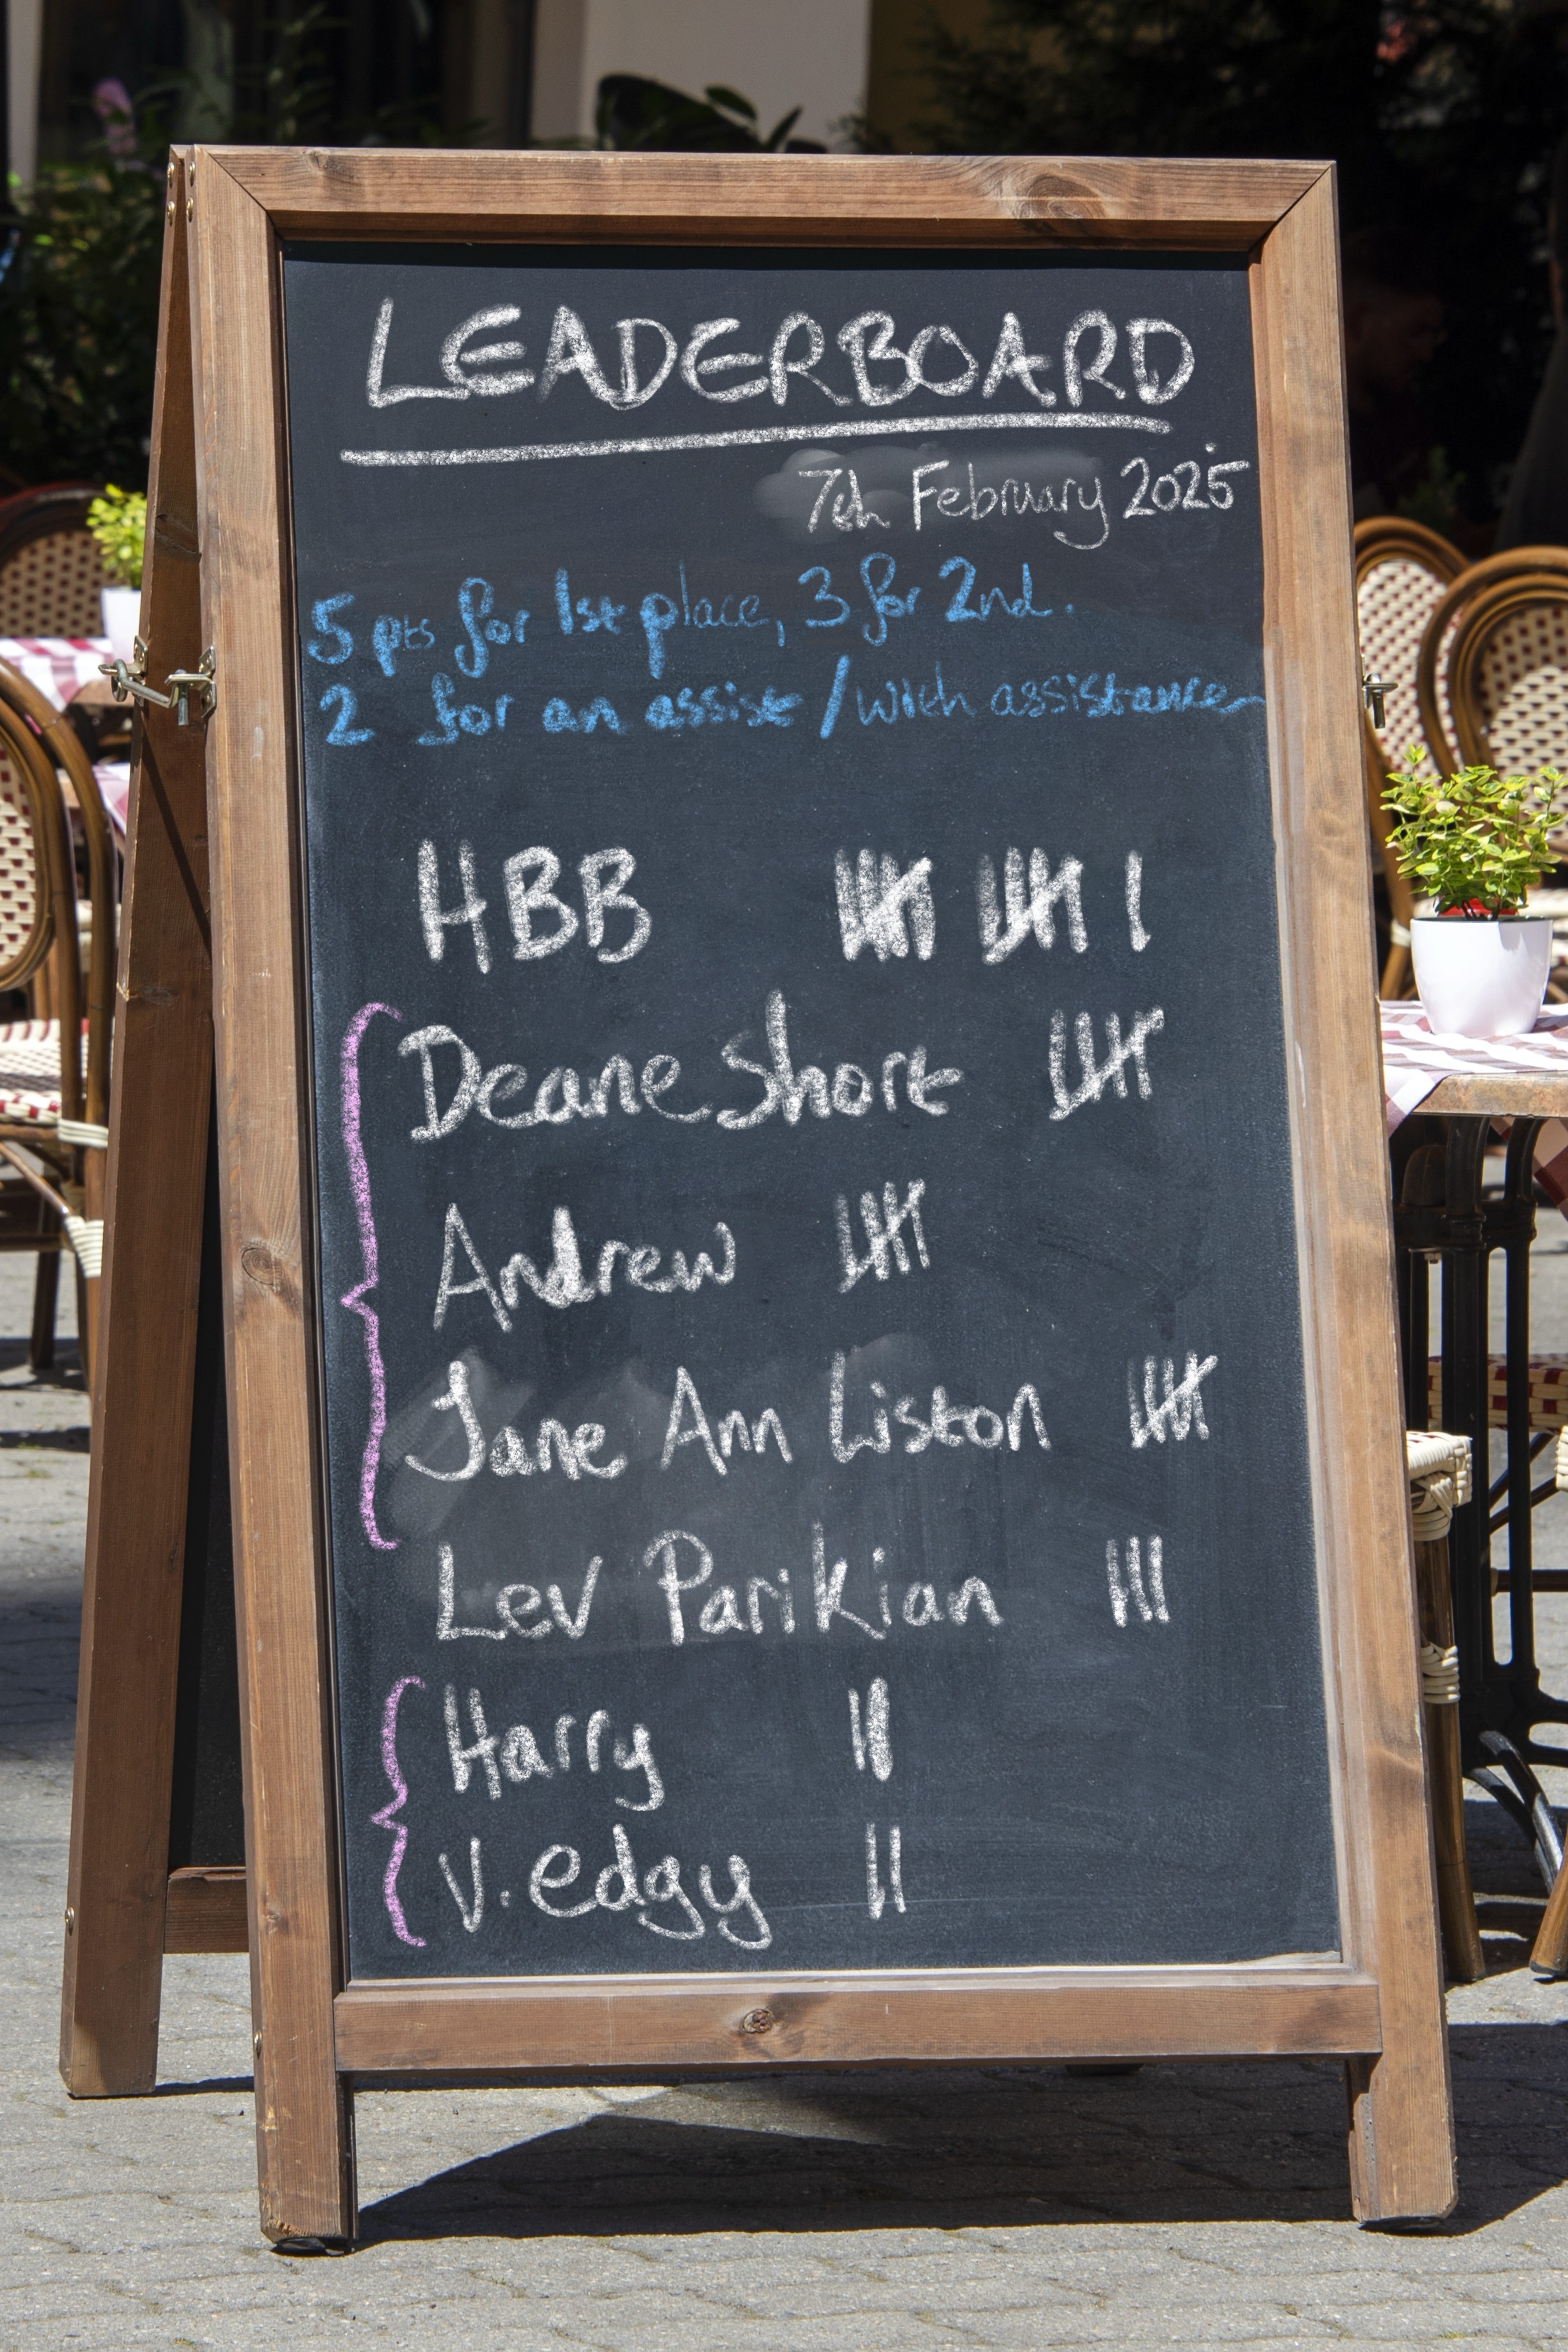 LEADERBOARD
7th February 2025
5 pts for 1st place, 3 for 2nd.
2 for an assist / with assistance
HBB 𝍸 𝍸 I
Deane Short 𝍸
Andrew 𝍸
Jane Ann Liston 𝍸
Lev Parikian III
Harry II
V. edgy II